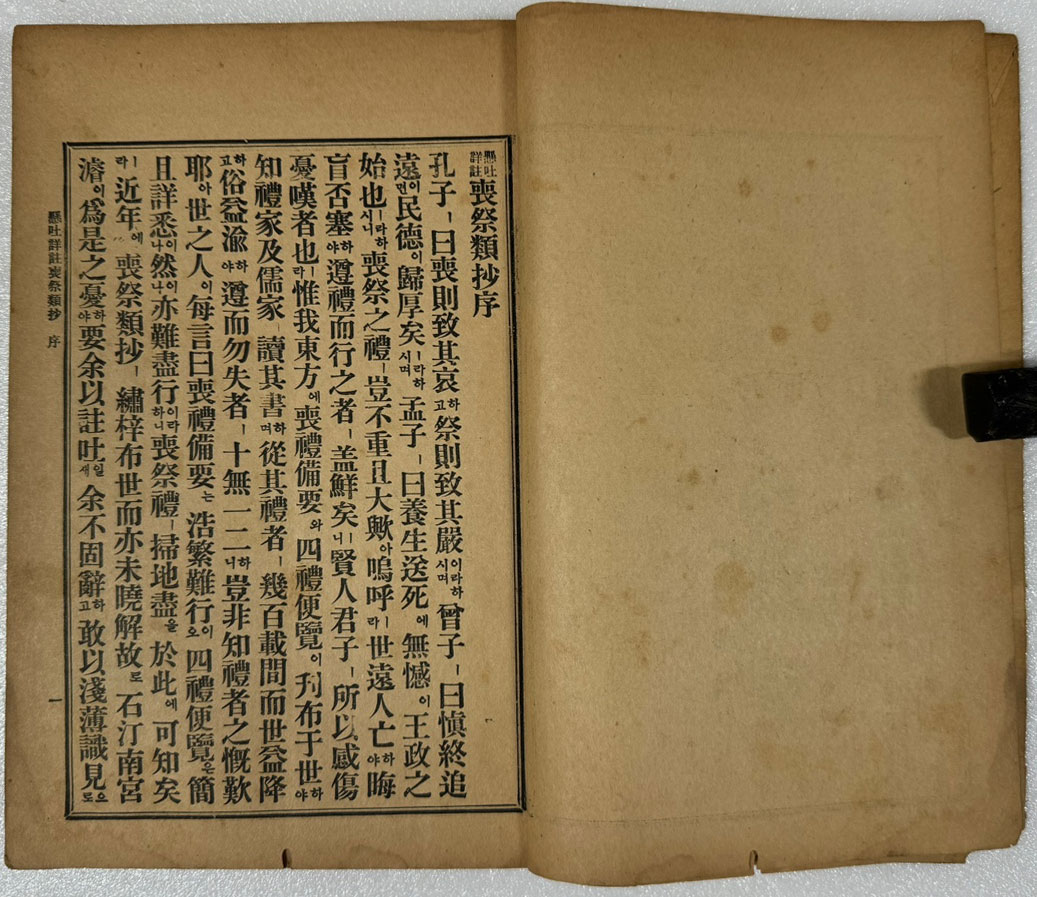 懸吐詳註喪祭類抄序
孔子ㅣ曰喪則致其哀하고祭則致其嚴이라하시며曾子ㅣ曰愼終追
遠이면民德이歸厚矣ㅣ라하시며孟子ㅣ曰養生送死에無憾이王政之
始也ㅣ라하시니喪祭之禮ㅣ豈不重且大歟아嗚呼ㅣ라世遠人亡하야晦
盲否塞하야遵禮而行之者ㅣ盖鮮矣ㅣ니賢人君子ㅣ所以感傷
憂嘆者也ㅣ라惟我東方에喪禮備要와四禮便覽이刋布于世하야
知禮家及儒家ㅣ讀其書하며從其禮者ㅣ幾百載間而世益降
하고俗益渝하야遵而勿失者ㅣ十無一二하니豈非知禮者之慨歎
耶아世之人이每言曰喪禮備要는浩繁難行이오四禮便覽은簡
且詳悉이나然이나亦難盡行이라하니喪祭禮ㅣ掃地盡을於此에可知矣
ㅣ라近年에喪祭類抄ㅣ繡梓布世而亦未曉解故로石汀南宮
濬이爲是之憂하야要余以註吐일새余不固辭하고敢以淺薄識見으로
懸吐詳註喪祭類抄 序 一